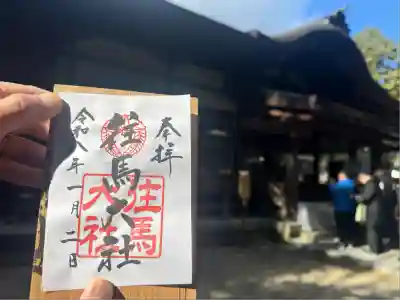 奉拝
往馬大社
令和八年一月二日
往馬
大社